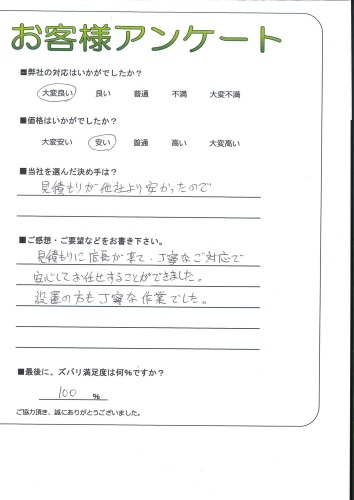 お客様アンケート
■弊社の対応はいかがでしたか？
大変良い 良い 普通 不満 大変不満
■価格はいかがでしたか？
大変安い 安い 普通 高い 大変高い
■当社を選んだ決め手は？
見積もりが他社より安かったので
■ご感想・ご要望などをお書き下さい。
見積もりに店長が来て、丁寧なご対応で
安心してお任せすることができました。
設置の方も丁寧な作業でした。
■最後に、ズバリ満足度は何%ですか？
100 %
ご協力頂き、誠にありがとうございました。